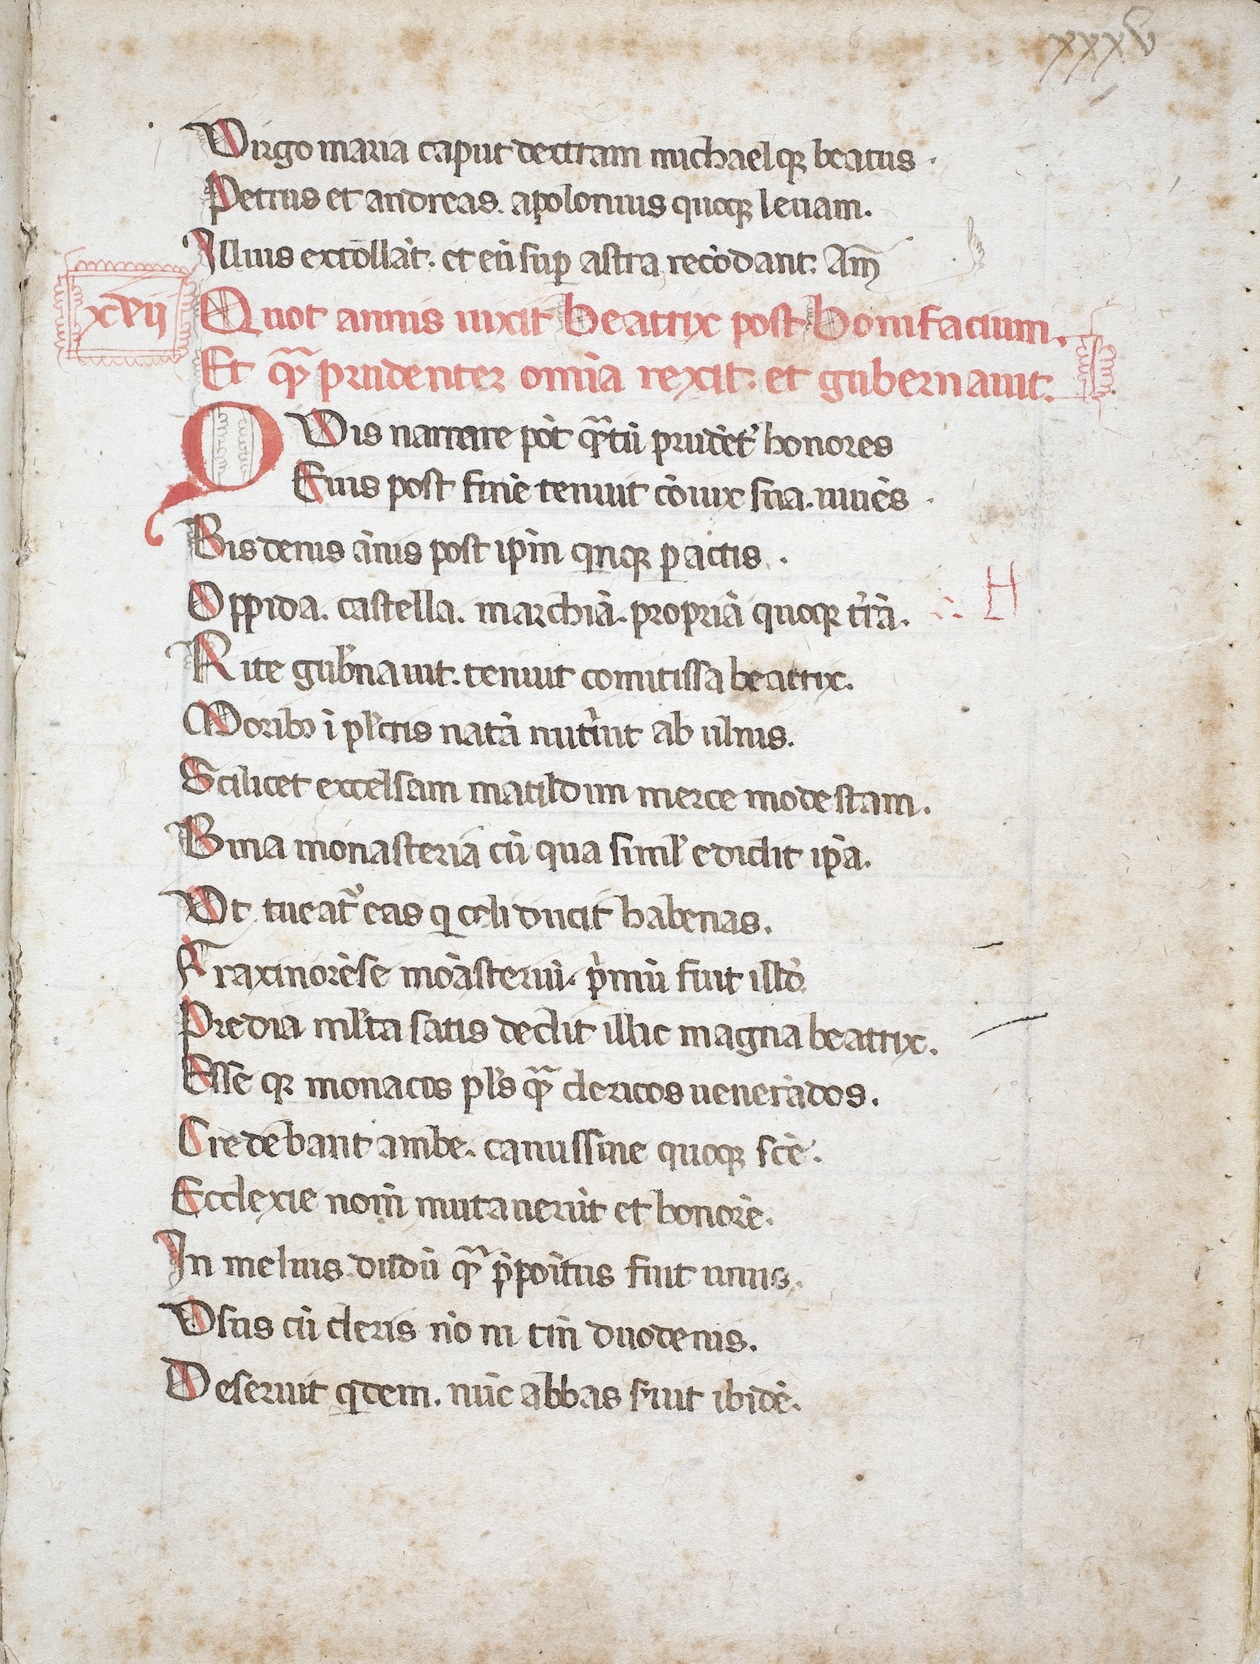 xxxv
Virgo maria caput dextram michaelqꝫ beatus .
Petrus et andreas. apolonius quoqꝫ leuam.
Illius extollāt. et eū suꝑ astra recōdant. Am̄
xvii Quot annis uixit beatrix post bonifacium.
Et qᵃm prudenter omīa rexit. et gubernauit.
QVis narrare pōt qᵃtū prudēt᷑ honores
Eius post finē tenuit cōiux sua. uiuēs .
Bis denis ānis post ip̄m qnqꝫ ꝑactis .
Oppida. castella. marchiā. propriā quoqꝫ tr̄ā. H
Rite gub̄nauit. tenuit comitissa beatrix.
Moribꝫ ī pl̄ctis natā nutᵢuit ab ulnis.
Scilicet excelsam matildim merce modestam.
Bina monasteria cū qua simł edidit ip̄a.
Vt tueat᷑ eas q celi ducit habenas.
Fraxinorēse mōasteriū. pⁱmū fuit istoꝝ
Predia ml̄ta satis dedit illic magna beatrix.
Esse qꝫ monacos pl̄s qᵃm clericos uenerādos.
Credebant ambe. canussine quoqꝫ sc̄e.
Ecclexie nom̄ mutauerūt et honorē.
In melius. dudū qᵃm p̄poītus fuit unus.
Vsus cū cleris nō ni tm̄ duodenis.
Deseruit qdem. nūc abbas fuit ibidē.